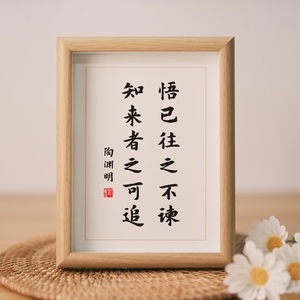 悟已往之不谏
知来者之可追
陶渊明